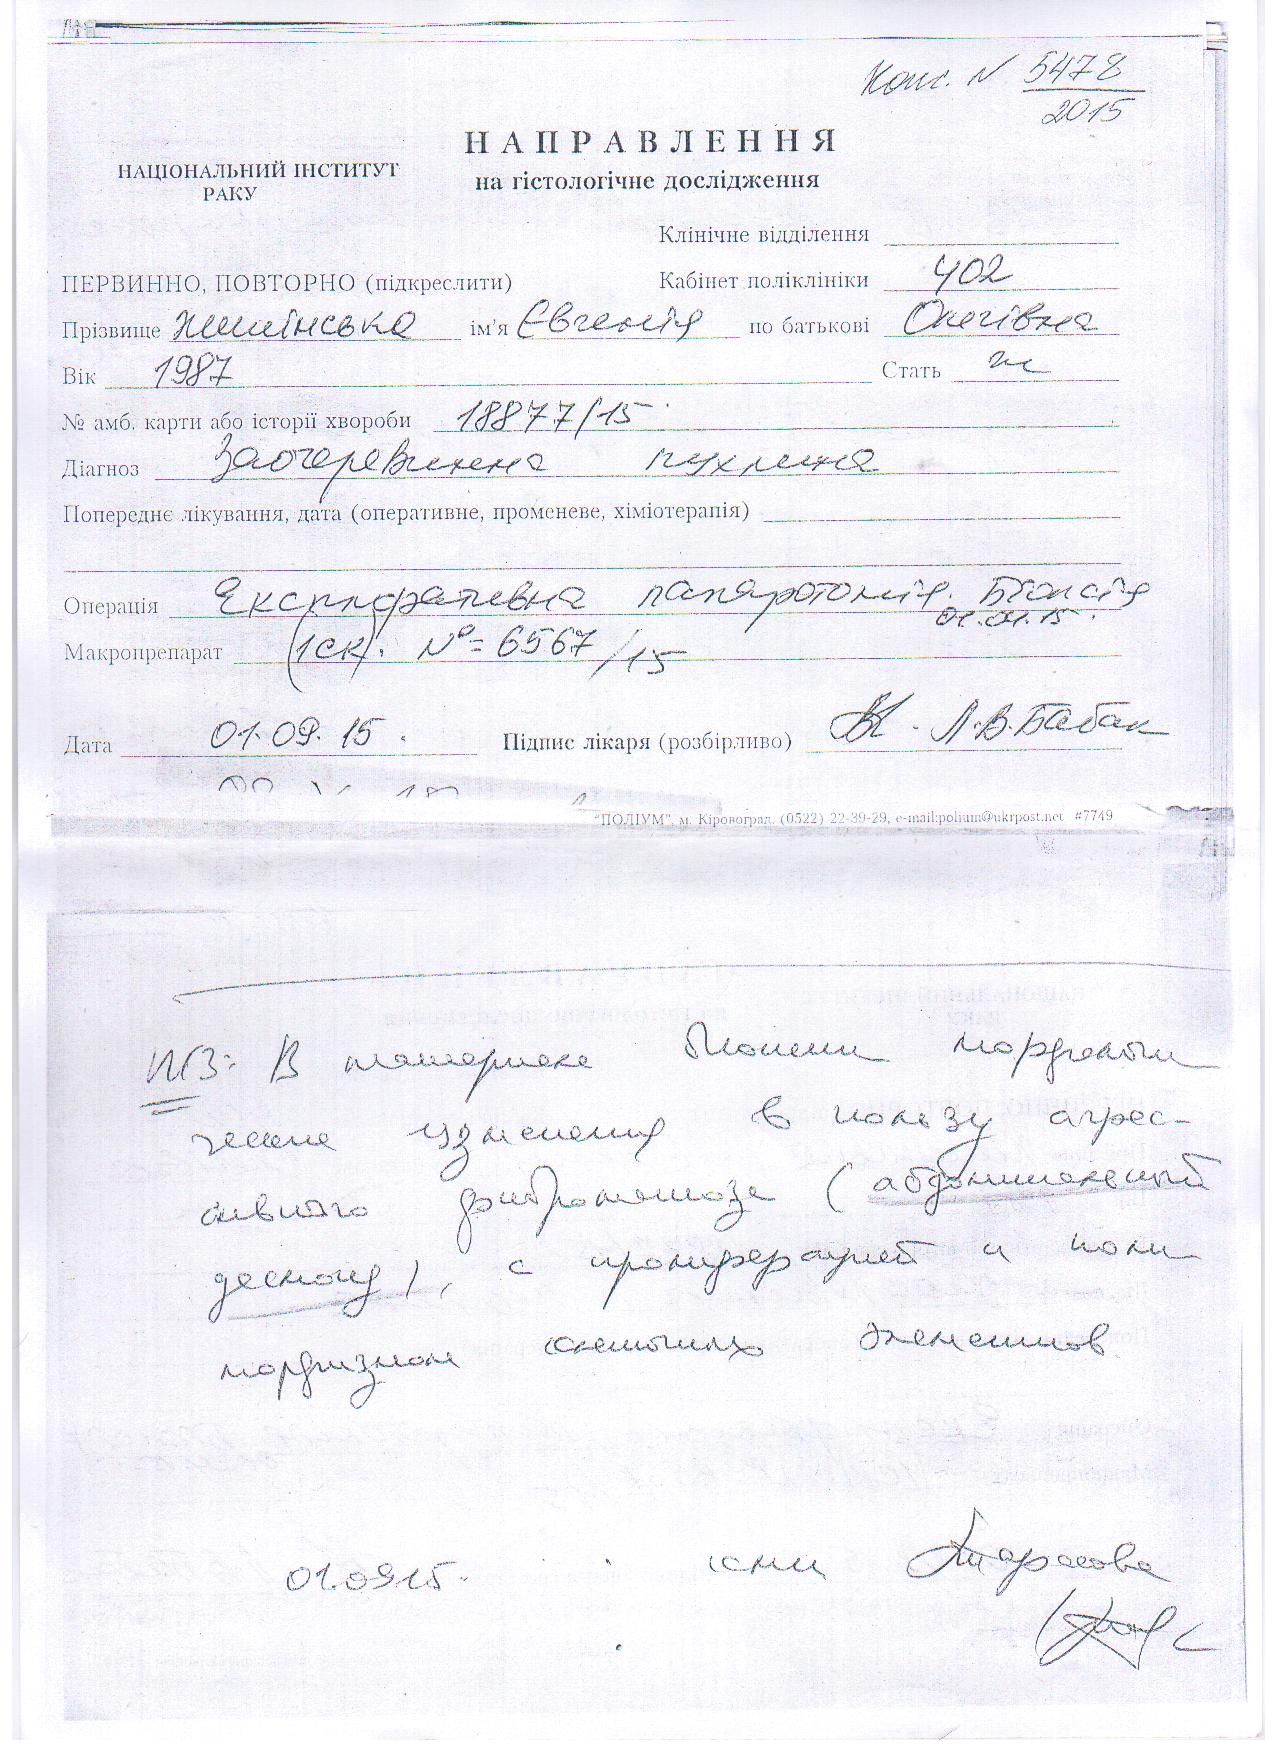 Конс. N 5478
2015
НАПРАВЛЕННЯ
НАЦІОНАЛЬНИЙ ІНСТИТУТ
РАКУ
на гістологічне дослідження
Клінічне відділення
ПЕРВИННО, ПОВТОРНО (підкреслити)
Кабінет поліклініки 402
Прізвище ім'я Євгенія по батькові Олегівна
Вік 1987 Стать ж
№ амб. карти або історії хвороби 18877/15
Діагноз Заочеревинна пухлина
Попереднє лікування, дата (оперативне, променеве, хіміотерапія)
Операція Експлоративна лапаротомія. Біопсія
01.01.15.
Макропрепарат (1ск). №=6567/15
Дата 01.09.15. Підпис лікаря (розбірливо) Л.В.Бабак
"ПОЛІУМ", м. Кіровоград, (0522) 22-39-29, e-mail:polium@ukrpost.net #7749
В материале биопсии морфологи
ческие изменения в пользу агрес-
сивного фиброматоза (абдоминальный
десмоид), с пролиферацией и поли
морфизмом клеточных элементов
01.09.15. Тарасова